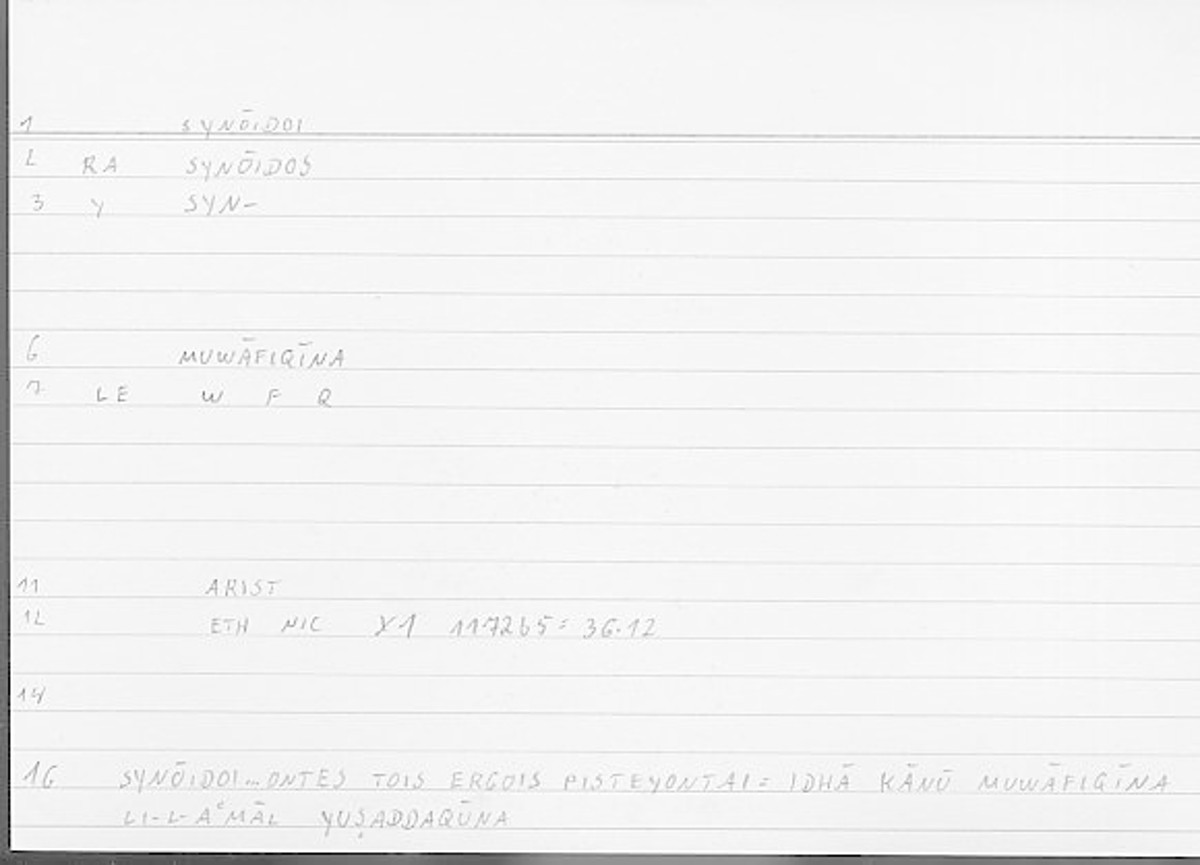 1 SYNŌIDOI
2 RA SYNŌIDOS
3 Y SYN-
6 MUWĀFIQĪNA
7 LE W F Q
11 ARIST
12 ETH NIC X1 1172b5= 36.12
14
16 SYNŌIDOI...ONTES TOIS ERGOIS PISTEYONTAI= IDHĀ KĀNŪ MUWĀFIQĪNA
LI-L-AʿMĀL YUṢADDAQŪNA